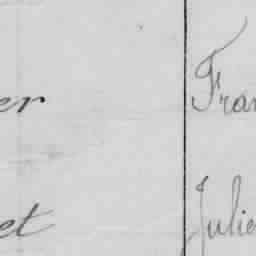 er Fran
et Julie